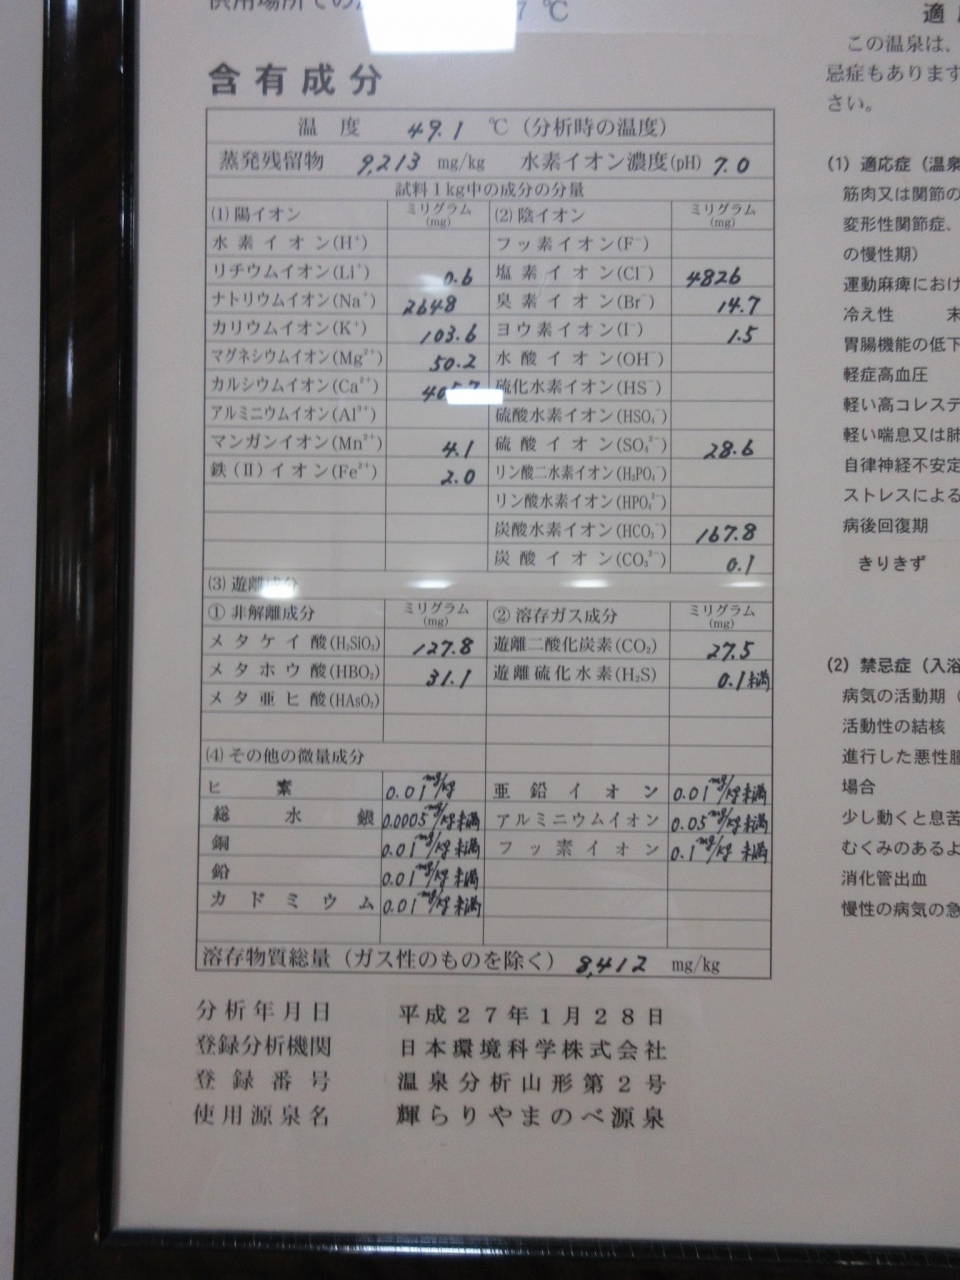 供用場所での
7 ℃
含有成分
温度 49.1 ℃(分析時の温度)
蒸発残留物 9,213 mg/kg 水素イオン濃度(pH) 7.0
試料1kg中の成分の分量
(1)陽イオン ミリグラム(mg) (2)陰イオン ミリグラム(mg)
水素イオン(H⁺) フッ素イオン(F⁻)
リチウムイオン(Li⁺) 0.6 塩素イオン(Cl⁻) 4826
ナトリウムイオン(Na⁺) 2648 臭素イオン(Br⁻) 14.7
カリウムイオン(K⁺) 103.6 ヨウ素イオン(I⁻) 1.5
マグネシウムイオン(Mg²⁺) 50.2 水酸イオン(OH⁻)
カルシウムイオン(Ca²⁺) 硫化水素イオン(HS⁻)
アルミニウムイオン(Al³⁺) 硫酸水素イオン(HSO₄⁻)
マンガンイオン(Mn²⁺) 4.1 硫酸イオン(SO₄²⁻) 28.6
鉄(Ⅱ)イオン(Fe²⁺) 2.0 リン酸二水素イオン(H₂PO₄⁻)
リン酸水素イオン(HPO₄²⁻)
炭酸水素イオン(HCO₃⁻) 167.8
炭酸イオン(CO₃²⁻) 0.1
(3)遊離成分
①非解離成分 ミリグラム(mg) ②溶存ガス成分 ミリグラム(mg)
メタケイ酸(H₂SiO₃) 127.8 遊離二酸化炭素(CO₂) 27.5
メタホウ酸(HBO₂) 31.1 遊離硫化水素(H₂S) 0.1未満
メタ亜ヒ酸(HAsO₂)
(4)その他の微量成分
ヒ素 0.01mg/kg 亜鉛イオン 0.01mg/kg未満
総水銀 0.0005mg/kg未満 アルミニウムイオン 0.05mg/kg未満
銅 0.01mg/kg未満 フッ素イオン 0.1mg/kg未満
鉛 0.01mg/kg未満
カドミウム 0.01mg/kg未満
溶存物質総量(ガス性のものを除く) 8,412 mg/kg
分析年月日 平成27年1月28日
登録分析機関 日本環境科学株式会社
登録番号 温泉分析山形第2号
使用源泉名 輝らりやまのべ源泉
適
この温泉は、
忌症もあります
さい。
(1) 適応症(温泉
筋肉又は関節の
変形性関節症、
の慢性期)
運動麻痺におけ
冷え性 末
胃腸機能の低下
軽症高血圧
軽い高コレステ
軽い喘息又は肺
自律神経不安定
ストレスによる
病後回復期
きりきず
(2) 禁忌症(入浴
病気の活動期(
活動性の結核
進行した悪性腫
場合
少し動くと息苦
むくみのあるよ
消化管出血
慢性の病気の急